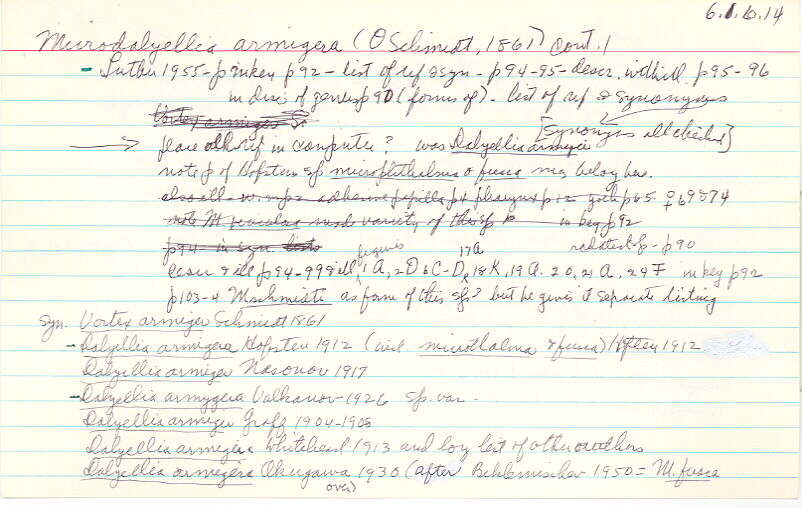 6.1.10.14
Microdalyellia armigera (O Schmidt, 1861) cont.
- Luther 1955 - p in key p 92 - list of ref & syn - p 94-95 - descr. with ill. p 95-96
in disc of genus p 90 (forms of). list of ref & synonyms
Vortex armiger Sc [synonyms all checked]
place all ref in computer? was Dalyellia armiger
note p of Hofsten sp microphthelma & fusca may belong here.
also all - w. mps adhesive papilla p4 pharynx p12 gut p65 ♀ 69 & 74
note M. made variety of this sp in key p 92
p 94 - in syn lists radiated sp - p 90
descr & ill p 94-99 & ill figures 1A, 2D & C-D, 17A 18K, 19A. 20, 21A, 24F in key p 92
p 103-4 M schmidti as form of this sp? but he gives it separate listing
syn. Vortex armiger Schmidt 1861
- Dalyellia armigera Hofsten 1912 (incl. microthalma & fusca) Hofsten 1912
Dalyellia armiger Nasonov 1917
- Dalyellia armygera Valkanov 1926 sp. var.
Dalyellia armiger Graff 1904-1905
Dalyellia armigera Whitehead 1913 and long list of other authors
Dalyellia armigera Okugawa 1930 (after Beklemischev 1950 = M. fusca
over)